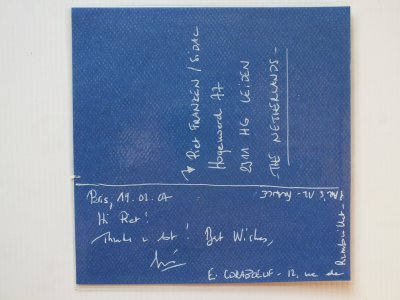 → Piet FRANZEN / SIDAC
Hogewoerd 77
2311 HG LEIDEN
THE NETHERLANDS -
Paris, 19.02.07
Hi Piet!
Thanks a lot! Best Wishes,
E. CORABOEUF - 12, rue de
Rambouillet -
PARIS 12 - FRANCE